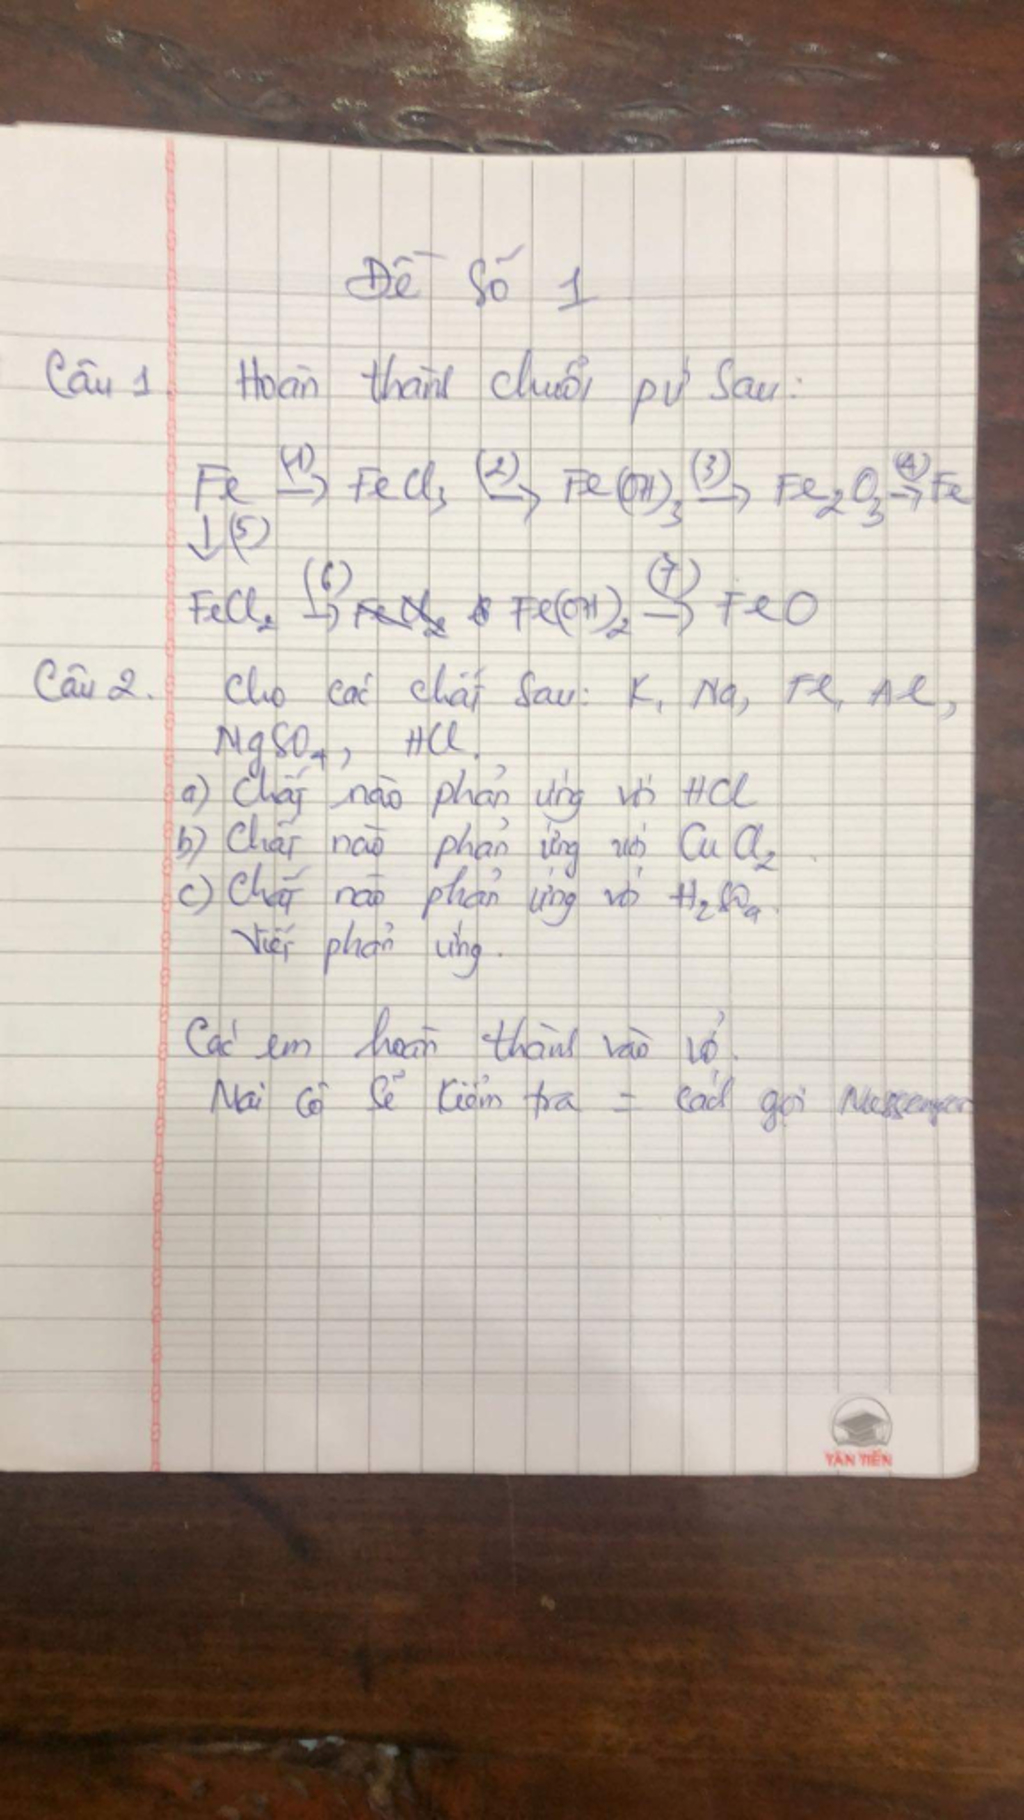 Đề số 1
Câu 1. Hoàn thành chuỗi pư sau:
Fe (1)→ FeCl3 (2)→ Fe(OH)3 (3)→ Fe2O3 (4)→ Fe
↓(5)
FeCl2 (6)→ Fe(OH)2 (7)→ FeO
Câu 2. Cho các chất sau: K, Na, Fe, Al,
MgSO4, HCl.
a) Chất nào phản ứng với HCl
b) Chất nào phản ứng với CuCl2.
c) Chất nào phản ứng với H2SO4.
Viết phản ứng.
Các em hoàn thành vào vở.
Mai cô sẽ kiểm tra = cách gọi Messenger
TÂN TIẾN